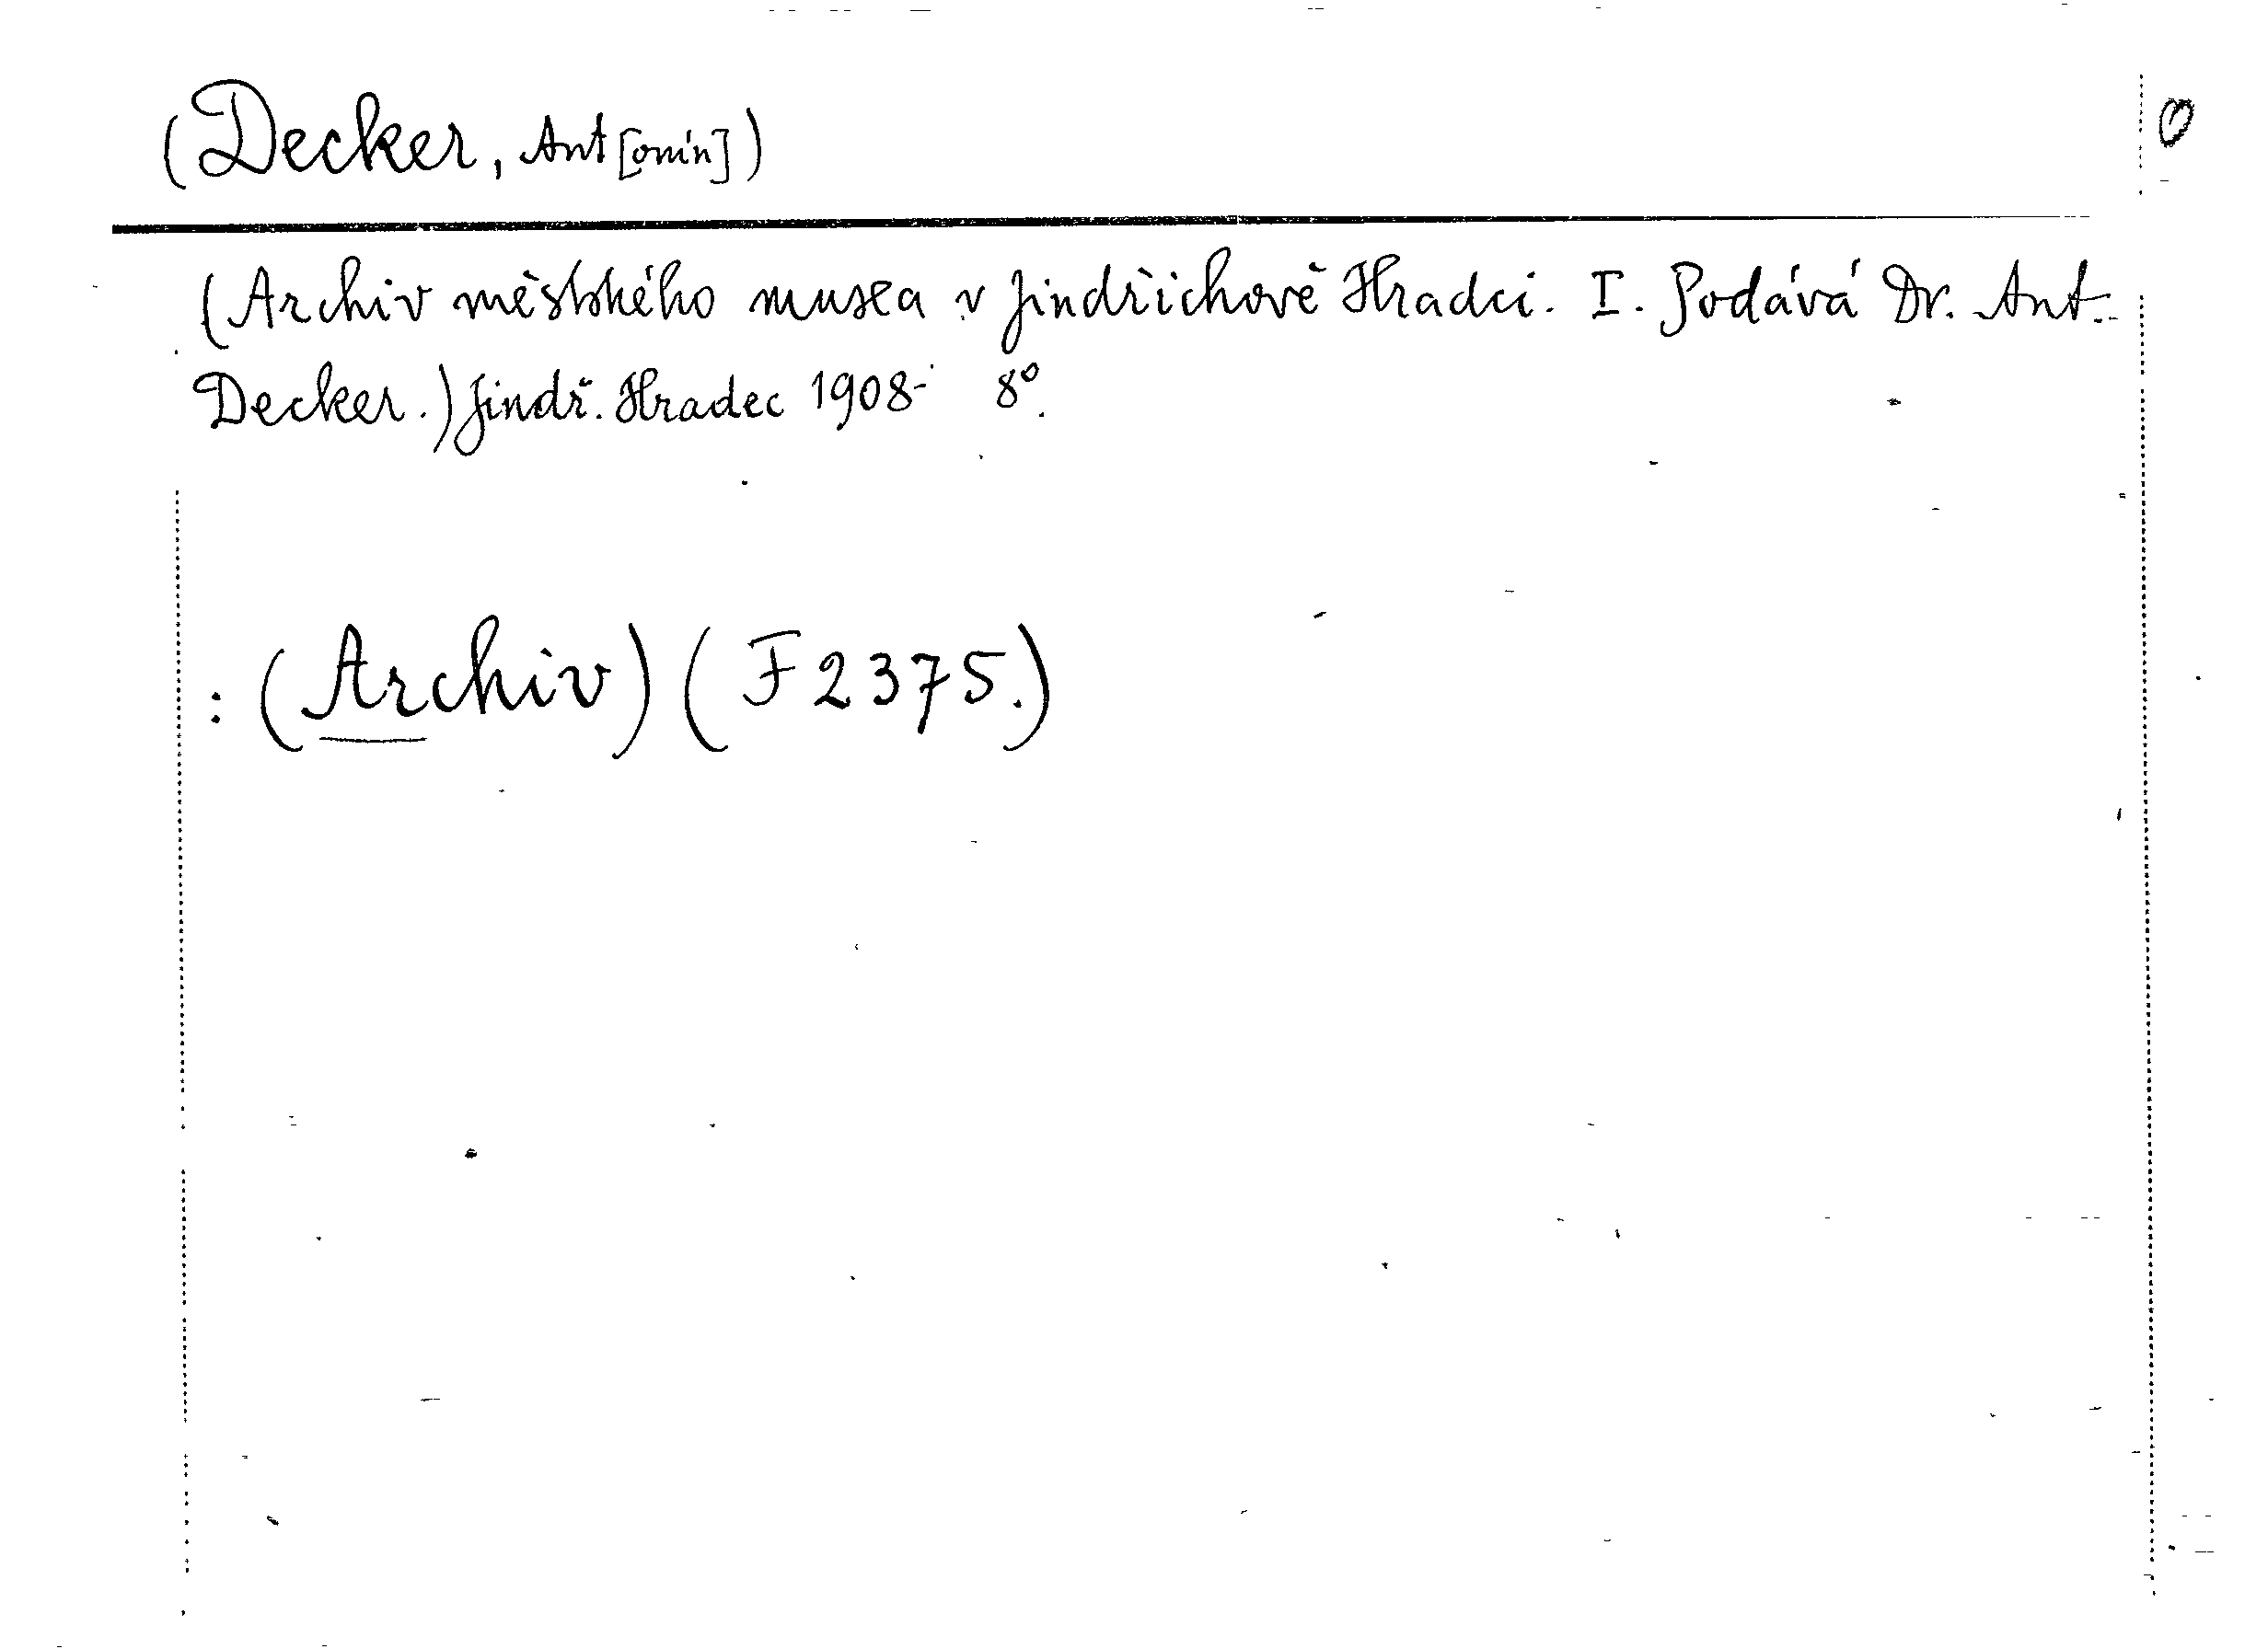 (Decker, Ant[onín])
(Archiv městského musea v Jindřichově Hradci. I. Podává Dr. Ant.
Decker.) Jindř. Hradec 1908- 8°.
: (Archiv) (F 2375.)